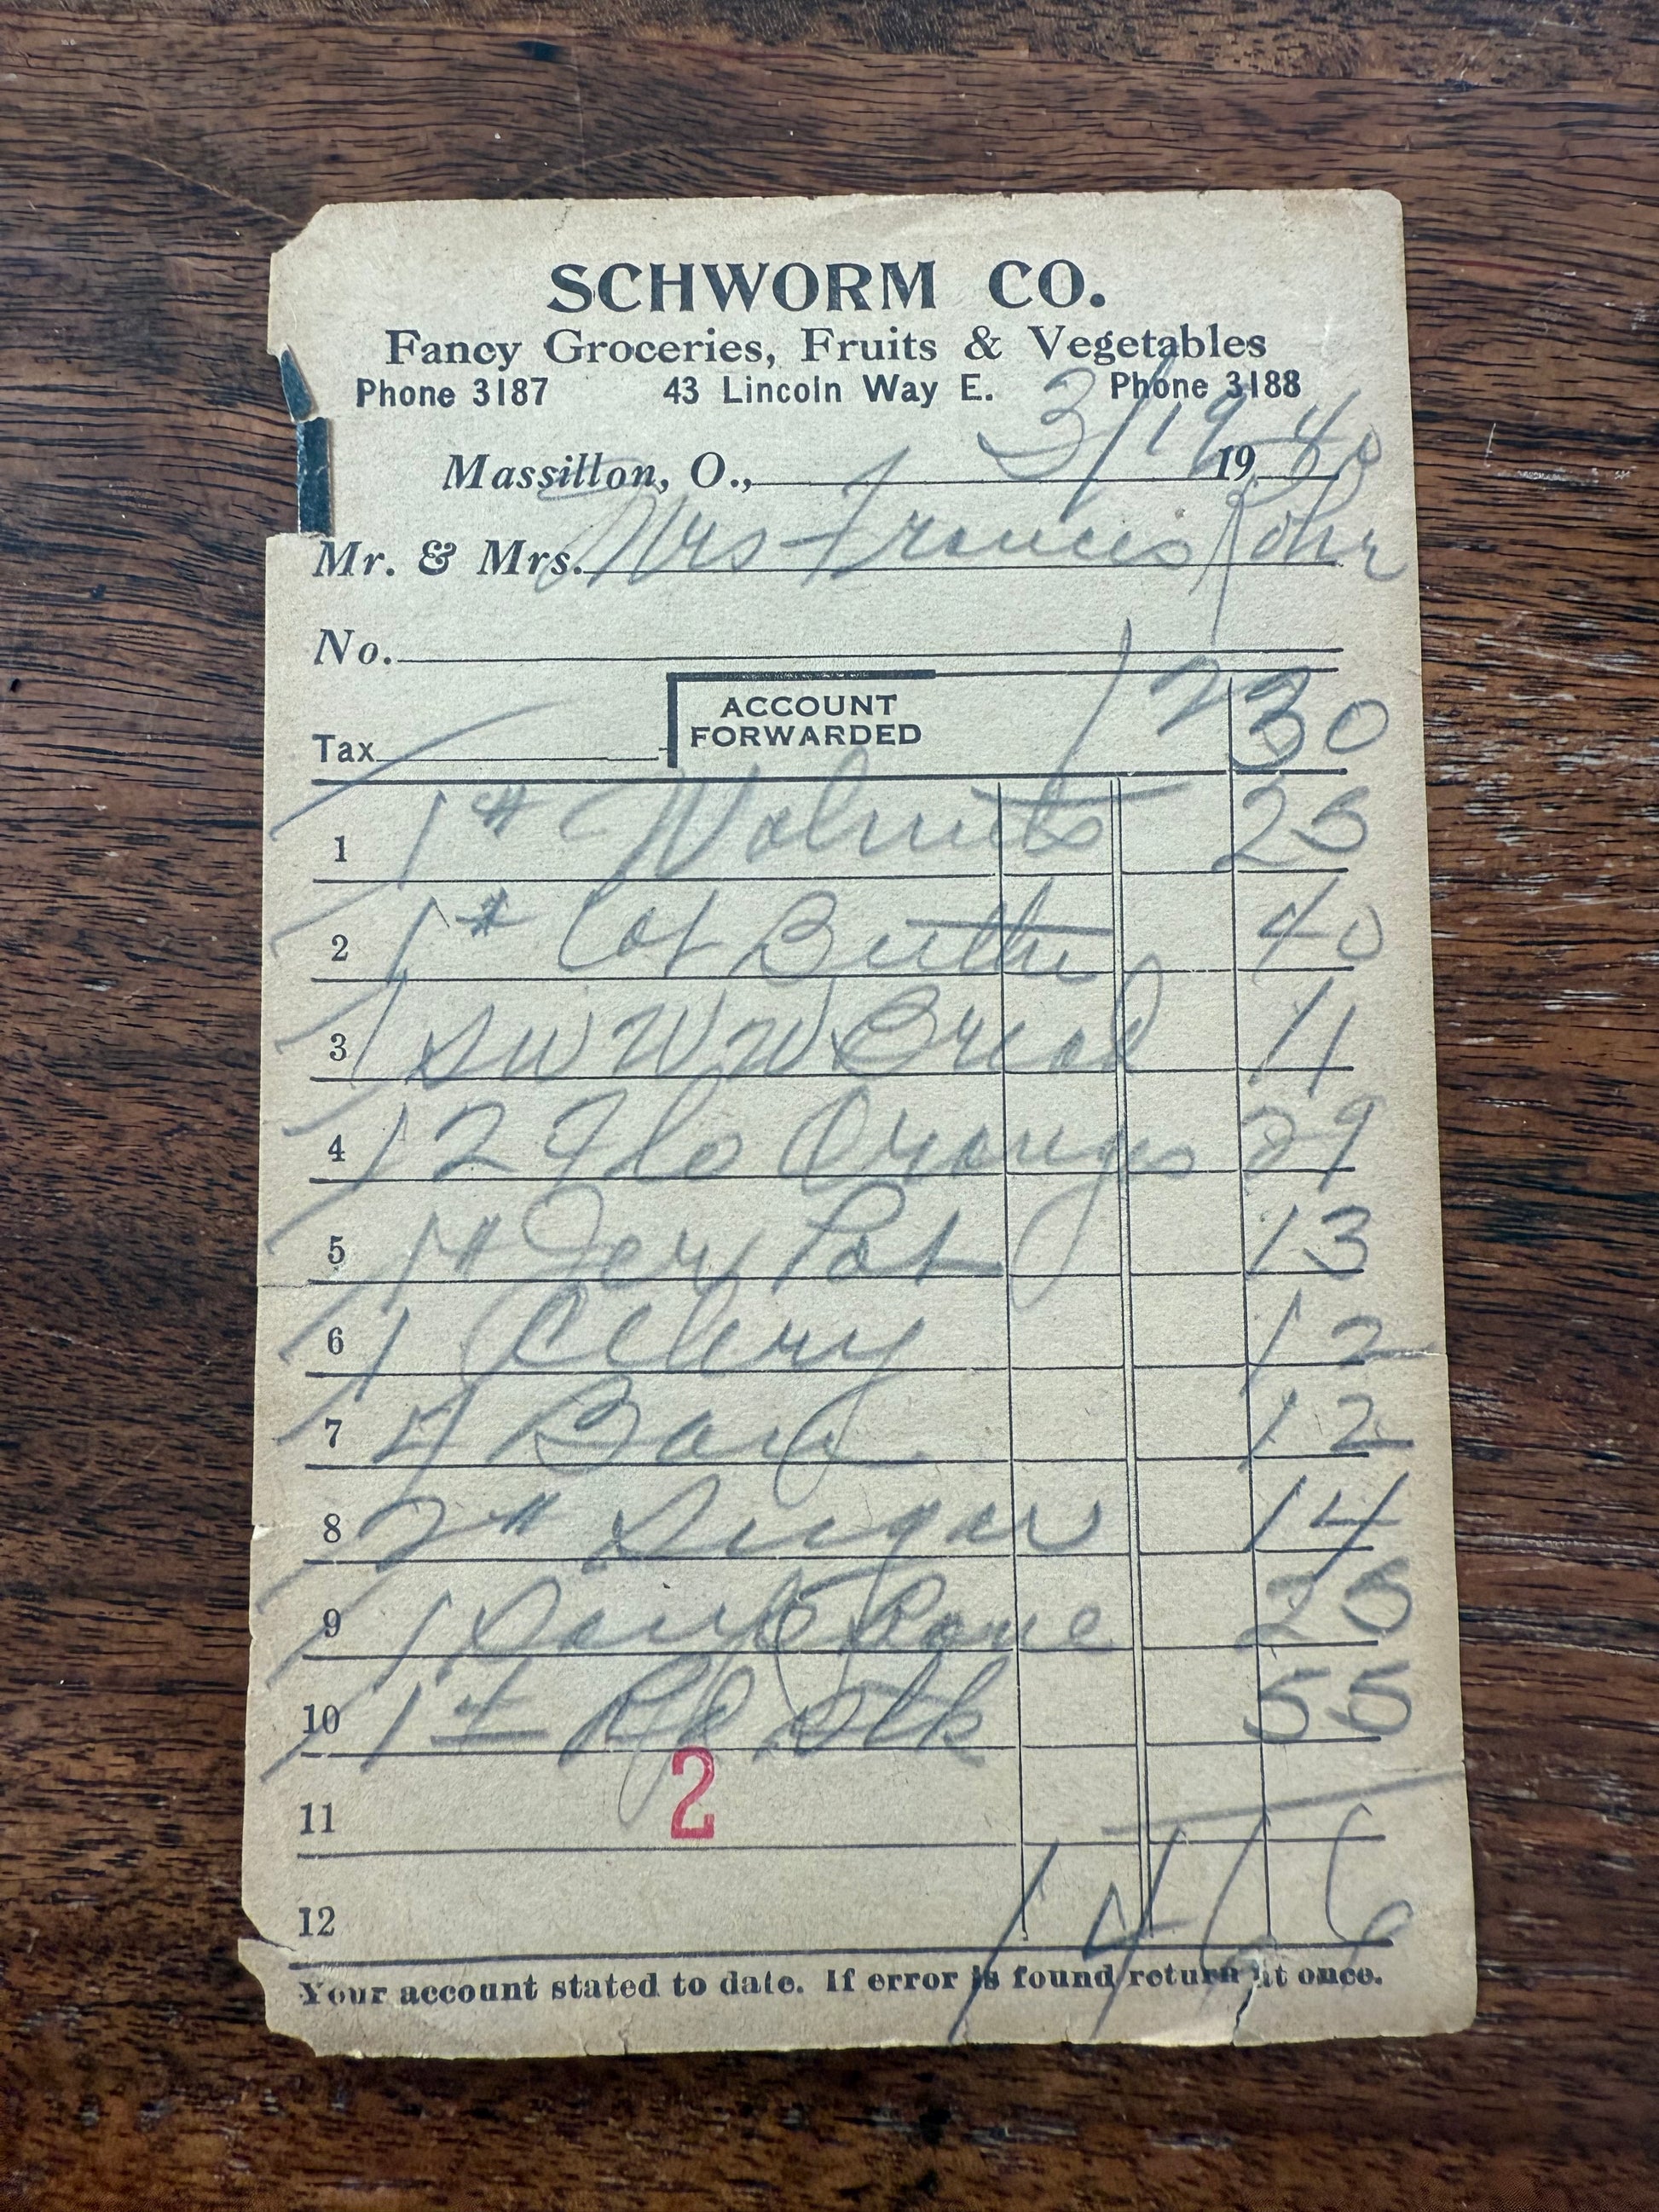 SCHWORM CO.
Fancy Groceries, Fruits & Vegetables
Phone 3187 43 Lincoln Way E. Phone 3188
Massillon, O., 3/19 1940
Mr. & Mrs. Mrs Francis Rohr
No.
Tax ACCOUNT FORWARDED 12 30
1 1# Walnuts 25
2 1# Cot Butter 40
3 1 S W W W Bread 11
4 12 Flo Oranges 29
5 1# Jery Pot 13
6 1 Celery 12
7 4 12
8 2# Sugar 14
9 1 25
10 1# Stk 55
2
11
12 14 66
Your account stated to date. If error is found return at once.